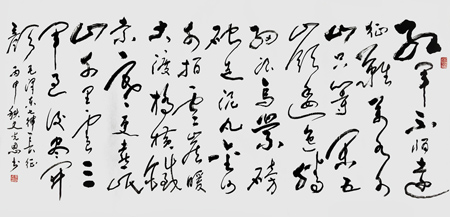 红军不怕远
征難萬水千
山只等闲五
岭逶迤腾
细浪乌蒙磅
礴走泥丸金沙
水拍雲崖暖
大渡桥横鐵
索寒更喜岷
山千里雪三
军过後尽开
颜 毛泽东诗长征
丙申 書